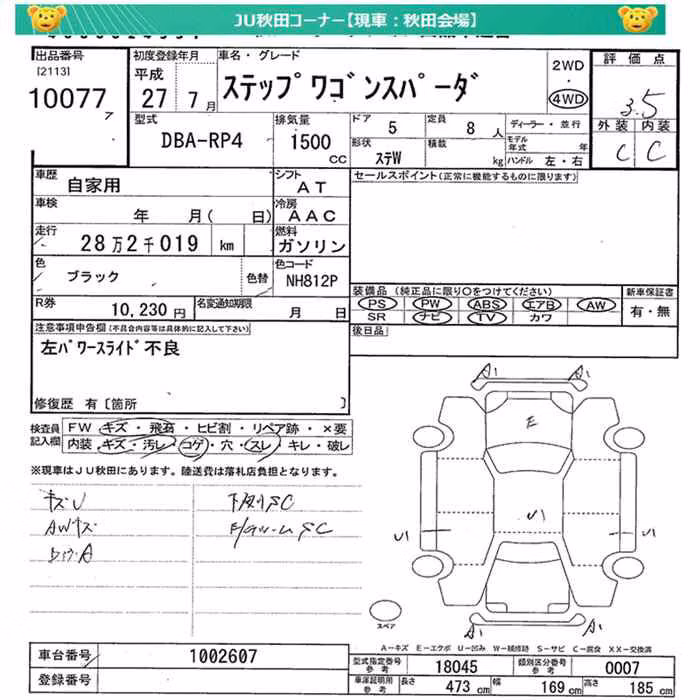 JU秋田コーナー【現車：秋田会場】
出品番号
[2113]
10077
7
初度登録年月
平成
27 7月
車名・グレード
ステップワゴンスパーダ
2WD
・
4WD
評価点
3.5
外装 内装
C C
型式
DBA-RP4
排気量
1500
CC
ドア 5 定員 8 人
形状 ステW 積載 kg
ディーラー・並行
モデル年式 年
ハンドル 左・右
車歴 自家用
シフト AT
セールスポイント(正常に機能するものに限ります)
車検 年 月( 日)
冷房 AAC
走行 28万2千019 km
燃料 ガソリン
色 ブラック 色替
色コード NH812P
装備品(純正品に限り○をつけてください)
PS PW ABS エアB AW
SR ナビ TV カワ
新車保証書
有・無
R券 10,230円
名変通知期限 月 日
後日品
注意事項申告欄(不具合内容等は具体的に記入して下さい)
左パワースライド不良
修復歴 有[箇所 ]
検査員記入欄
FW キズ・飛石・ヒビ割・リペア跡・×要
内装 キズ・汚レ・コゲ・穴・スレ・キレ・破レ
※現車はJU秋田にあります。陸送費は落札店負担となります。
キズU
AWキズ
下廻りSC
A1 A1
E
U1 U1 U1
A1 A1
スペア
A－キズ E－エクボ U－凹み W－補修跡 S－サビ C－腐食 XX－交換済
車台番号 1002607
登録番号
型式指定番号 参考 18045
類別区分番号 参考 0007
車庫証明用 参考 長さ 473cm 幅 169cm 高さ 185cm